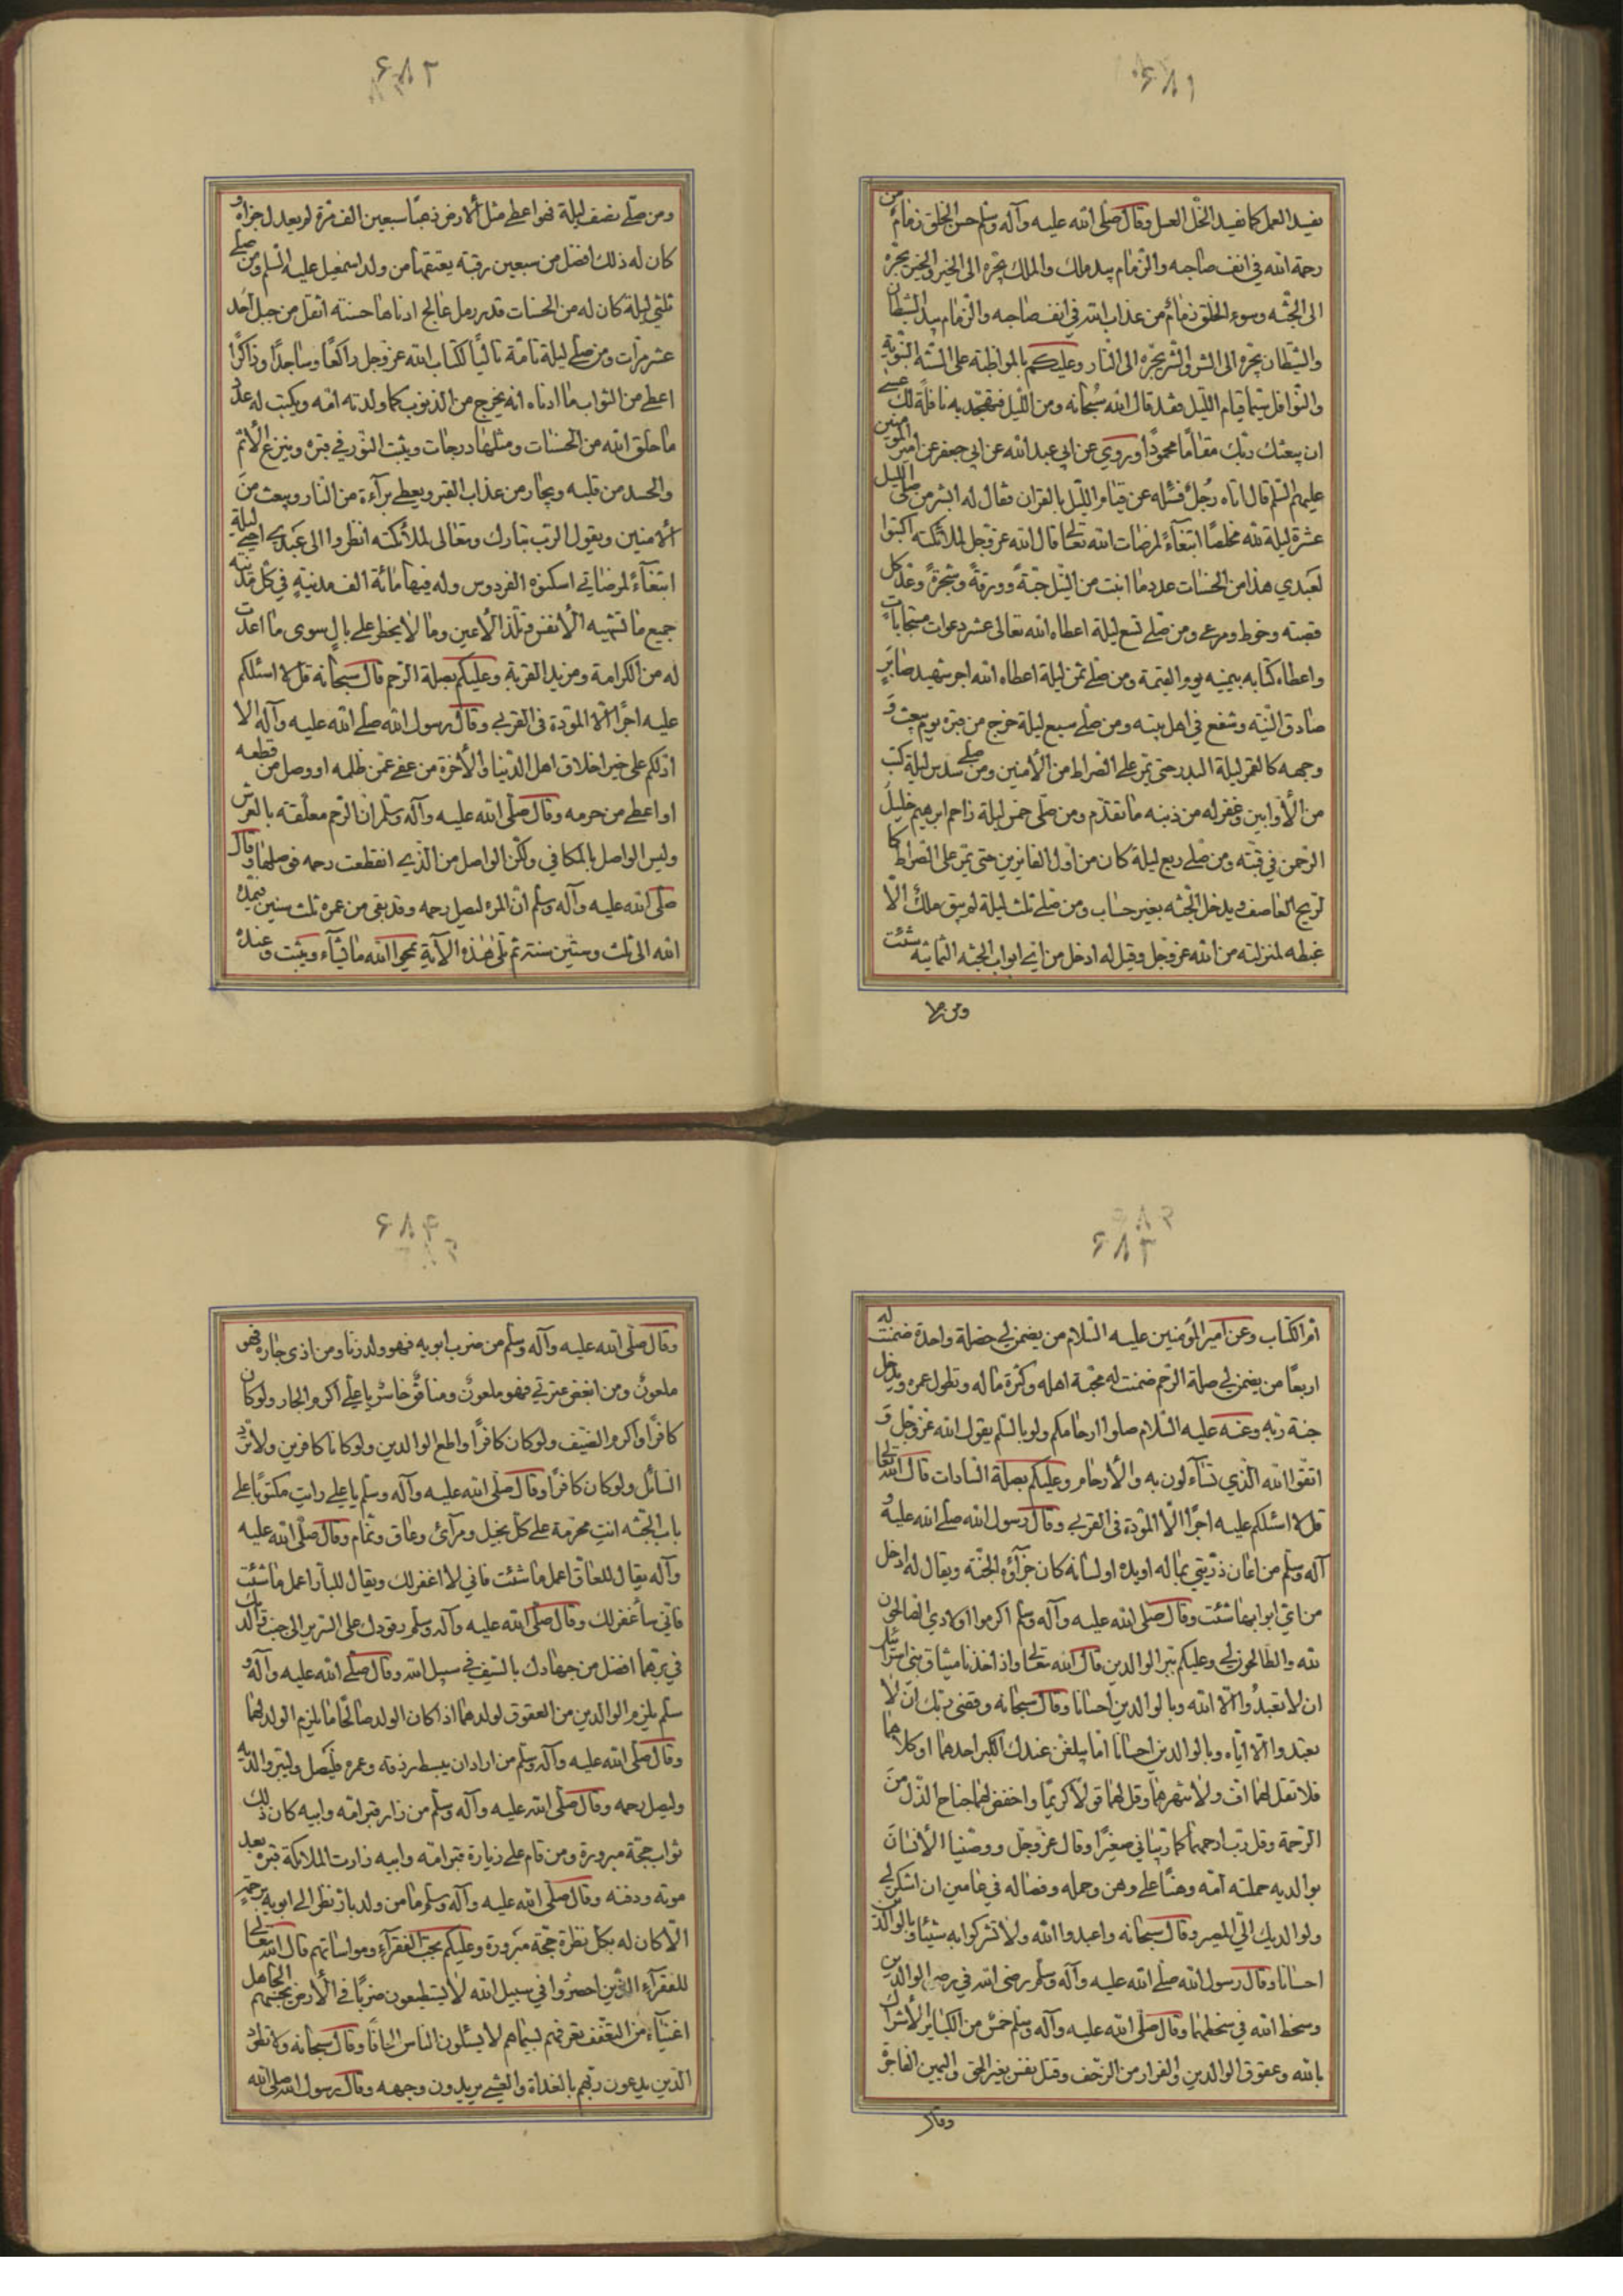 ۶۸۱
يفسد العمل كما يفسد الخل العسل وقال صلى الله عليه وآله وسلم حسن الخلق زمام من
رحمة الله في انف صاحبه والزمام بيد ملك والملك يجره الى الخير والخير يجره
الى الجنة وسوء الخلق زمام من عذاب الله في انف صاحبه والزمام بيد الشيطان
والشيطان يجره الى الشر والشر يجره الى النار وعليكم بالمواظبة على السنة النبوية
والنوافل سيما قيام الليل فقد قال الله سبحانه ومن الليل فتهجد به نافلة لك عسى
ان يبعثك ربك مقاما محمودا وروي عن ابي عبد الله عن ابي جعفر عن امير المؤمنين
عليهم السلم قال اتاه رجل فسئله عن قيام الليل بالقران فقال له ابشر من صلى الليل
عشرة ليلة لله مخلصا ابتغاء لمرضات الله تعالى قال الله عز وجل لملائكته اكتبوا
لعبدي هذا من الحسنات عدد ما انبت من النيل حبة وورقة وشجرة وعدد كل
قصبة وخوط ومرعى ومن صلى تسع ليلة اعطاه الله تعالى عشر دعوات مستجابات
واعطاه كتابه بيمينه يوم القيمة ومن صلى ثمن ليلة اعطاه الله اجر شهيد صابر
صادق النية وشفع في اهل بيته ومن صلى سبع ليلة خرج من قبره يوم يبعث و
وجهه كالقمر ليلة البدر حتى يمر على الصراط من الأمنين ومن صلى سدس ليلة كتب
من الأوابين وغفر له من ذنبه ما تقدم ومن صلى خمس ليلة زاحم ابرهيم خليل
الرحمن في قبته ومن صلى ربع ليلة كان من اول الفائزين حتى يمر على الصراط كا
لريح العاصف ويدخل الجنة بغير حساب ومن صلى ثلث ليلة لم يبق ملك الا
غبطه لمنزلته من الله عز وجل وقيل له ادخل من اي ابواب الجنة الثمانية شئت
ومن صلى
۶۸۲
ومن صلى نصف ليلة فلو اعطى مثل الأرض ذهبا سبعين الف مرة لم يعدل جزاؤه و
كان له ذلك افضل من سبعين رقبة يعتقها من ولد اسمعيل عليه السلم ومن صلى
ثلثي ليلة كان له من الحسنات قدر رمل عالج ادناها حسنة اثقل من جبل احد
عشر مرات ومن صلى ليلة تامة تاليا لكتاب الله عز وجل راكعا وساجدا وذاكرا
اعطى من الثواب ما ادناه انه يخرج من الذنوب كما ولدته امه ويكتب له عدد
ما خلق الله من الحسنات ومثلها درجات ويثبت النور في قبره وينزع الأثم
والحسد من قلبه ويجار من عذاب القبر ويعطى براءة من النار ويبعث من
الأمنين ويقول الرب تبارك وتعالى لملائكته انظروا الى عبدي احيى ليلة
ابتغاء لمرضاتي اسكنوه الفردوس وله فيها مائة الف مدينة في كل مدينة
جميع ما تشتهيه الأنفس وتلذ الأعين وما لا يخطر على بال سوى ما اعددت
له من الكرامة ومزيد القربة وعليكم بصلة الرحم قال سبحانه قل لا اسئلكم
عليه اجرا الا المودة في القربى وقال رسول الله صلى الله عليه وآله الا
ادلكم على خير اخلاق اهل الدنيا والأخرة من عفى عمن ظلمه او وصل من قطعه
او اعطى من حرمه وقال صلى الله عليه وآله وسلم ان الرحم معلقة بالعرش
وليس الواصل بالمكافي ولكن الواصل من الذي انقطعت رحمه فوصلها وقال
صلى الله عليه وآله وسلم ان المرء ليصل رحمه وقد بقي من عمره ثلث سنين فيمده
الله الى ثلث وستين سنة ثم تلى هذه الآية يمحو الله ما يشاء ويثبت وعنده
۶۸۳
ام الكتاب وعن امير المؤمنين عليه السلام من يضمن لي خصلة واحدة ضمنت له
اربعا من يضمن لي صلة الرحم ضمنت له محبة اهله وكثرة ماله وتطول عمره ويدخل
جنة ربه وعنه عليه السلام صلوا ارحامكم ولو بالسلم يقول الله عز وجل و
اتقوا الله الذي تساءلون به والأرحام وعليكم بصلة السادات قال الله تعالى
قل لا اسئلكم عليه اجرا الا المودة في القربى وقال رسول الله صلى الله عليه و
آله وسلم من اعان ذريتي بماله او يده او لسانه كان جزاؤه الجنة ويقال له ادخل
من اي ابوابها شئت وقال صلى الله عليه وآله وسلم اكرموا اولادي الصالحون
لله والطالحون لي وعليكم ببر الوالدين قال الله تعالى واذ اخذنا ميثاق بني اسرائيل
ان لا تعبدوا الا الله وبالوالدين احسانا وقال سبحانه وقضى ربك ان لا
تعبدوا الا اياه وبالوالدين احسانا اما يبلغن عندك الكبر احدهما او كلاهما
فلا تقل لهما اف ولا تنهرهما وقل لهما قولا كريما واخفض لهما جناح الذل من
الرحمة وقل رب ارحمهما كما ربياني صغيرا وقال عز وجل ووصينا الأنسان
بوالديه حملته امه وهنا على وهن وحمله وفصاله في عامين ان اشكر لي
ولوالديك الي المصير وقال سبحانه واعبدوا الله ولا تشركوا به شيئا وبالوالدين
احسانا وقال رسول الله صلى الله عليه وآله وسلم رضى الله في رضى الوالدين
وسخط الله في سخطهما وقال صلى الله عليه وآله وسلم خمس من الكبائر الأشراك
بالله وعقوق الوالدين والفرار من الزحف وقتل نفس بغير الحق واليمين الفاجرة
وقال
۶۸۴
وقال صلى الله عليه وآله وسلم من ضرب ابويه فهو ولد زنا ومن اذى جاره فهو
ملعون ومن ابغض عترتي فهو ملعون ومنافق خاسر يا علي اكرم الجار ولو كان
كافرا واكرم الضيف ولو كان كافرا واطع الوالدين ولو كانا كافرين ولا ترد
السائل ولو كان كافرا وقال صلى الله عليه وآله وسلم يا علي رايت مكتوبا على
باب الجنة انت محرمة على كل بخيل ومرائ وعاق ونمام وقال صلى الله عليه
وآله يقال للعاق اعمل ما شئت فاني لا اغفر لك ويقال للبار اعمل ما شئت
فاني سأغفر لك وقال صلى الله عليه وآله وسلم رقودك على السرير الى جنب والديك
في برهما افضل من جهادك بالسيف في سبيل الله وقال صلى الله عليه وآله و
سلم يلزم الوالدين من العقوق لولدهما اذا كان الولد صالحا ما يلزم الولد لهما
وقال صلى الله عليه وآله وسلم من اراد ان يبسط رزقه وعمره فليصل وليبر والديه
وليصل رحمه وقال صلى الله عليه وآله وسلم من زار قبر امه وابيه كان ذلك
ثواب حجة مبرورة ومن قام على زيارة قبر امه وابيه زارت الملائكة قبره بعد
موته ودفنه وقال صلى الله عليه وآله وسلم ما من ولد بار نظر الى ابويه برحمة
الا كان له بكل نظرة حجة مبرورة وعليكم بحب الفقراء ومواساتهم قال الله تعالى
للفقراء الذين احصروا في سبيل الله لا يستطيعون ضربا في الأرض يحسبهم الجاهل
اغنياء من التعفف تعرفهم بسيماهم لا يسئلون الناس الحافا وقال سبحانه ولا تطرد
الذين يدعون ربهم بالغداة والعشي يريدون وجهه وقال رسول الله صلى الله